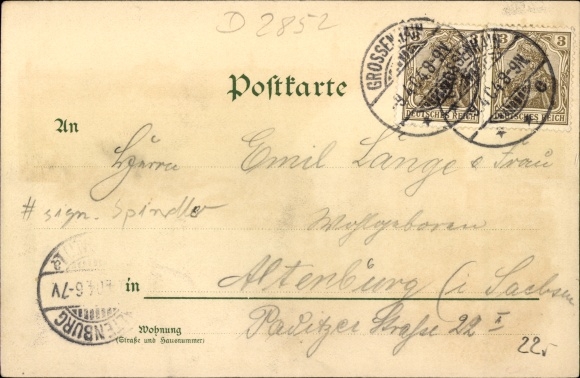 D 2852
Postkarte
3
3
DEUTSCHES REICH
DEUTSCHES REICH
GROSSENHAIN
An
Herrn Emil Lange & Frau
# sign. Spindler
Wohlgeboren
in Altenburg i Sachsen
ALTENBURG
6-7V
Wohnung
(Straße und Hausnummer)
Paditzer Straße 22 I
22,-